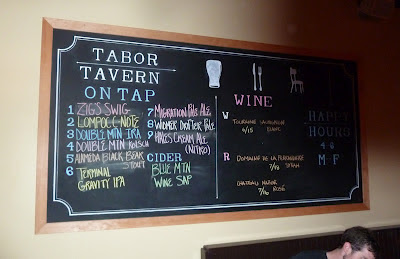 TABOR
TAVERN
ON TAP
1 ZIG'S SWIG
2 LOMPOC C-NOTE
3 DOUBLE MTN IRA
4 DOUBLE MTN KOLSCH
5 ALAMEDA BLACK BEAR
STOUT
6 TERMINAL
GRAVITY IPA
7 MIGRATION PALE ALE
8 WORKER DRAFTER PALE
9 HALES CREAM ALE
(NITRO)
CIDER
BLUE MTN
WINE SAP
WINE
W
TOURAINE
9/15 BLANC
R DOMAINE DE LA
7/19 SYRAH
CHATEAU
7/16 ROSÉ
HAPPY
HOURS
4-6
M-F